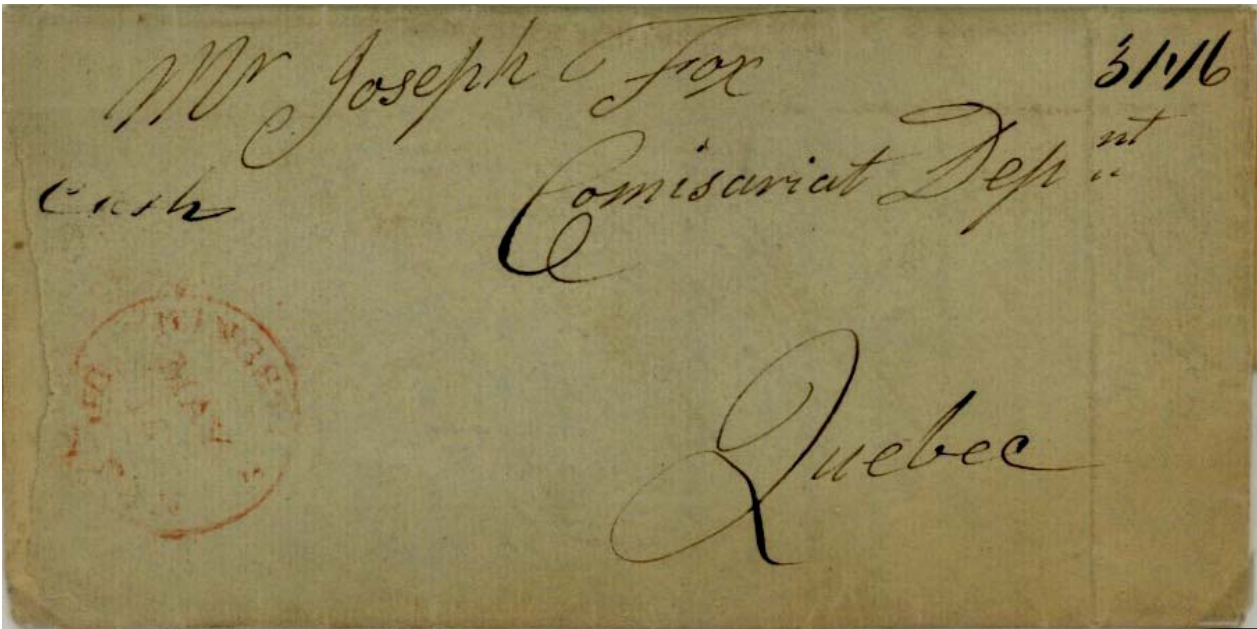 Mr Joseph Fox
3/1/6
Comisariat Dep nt
Cash
Quebec
MAY